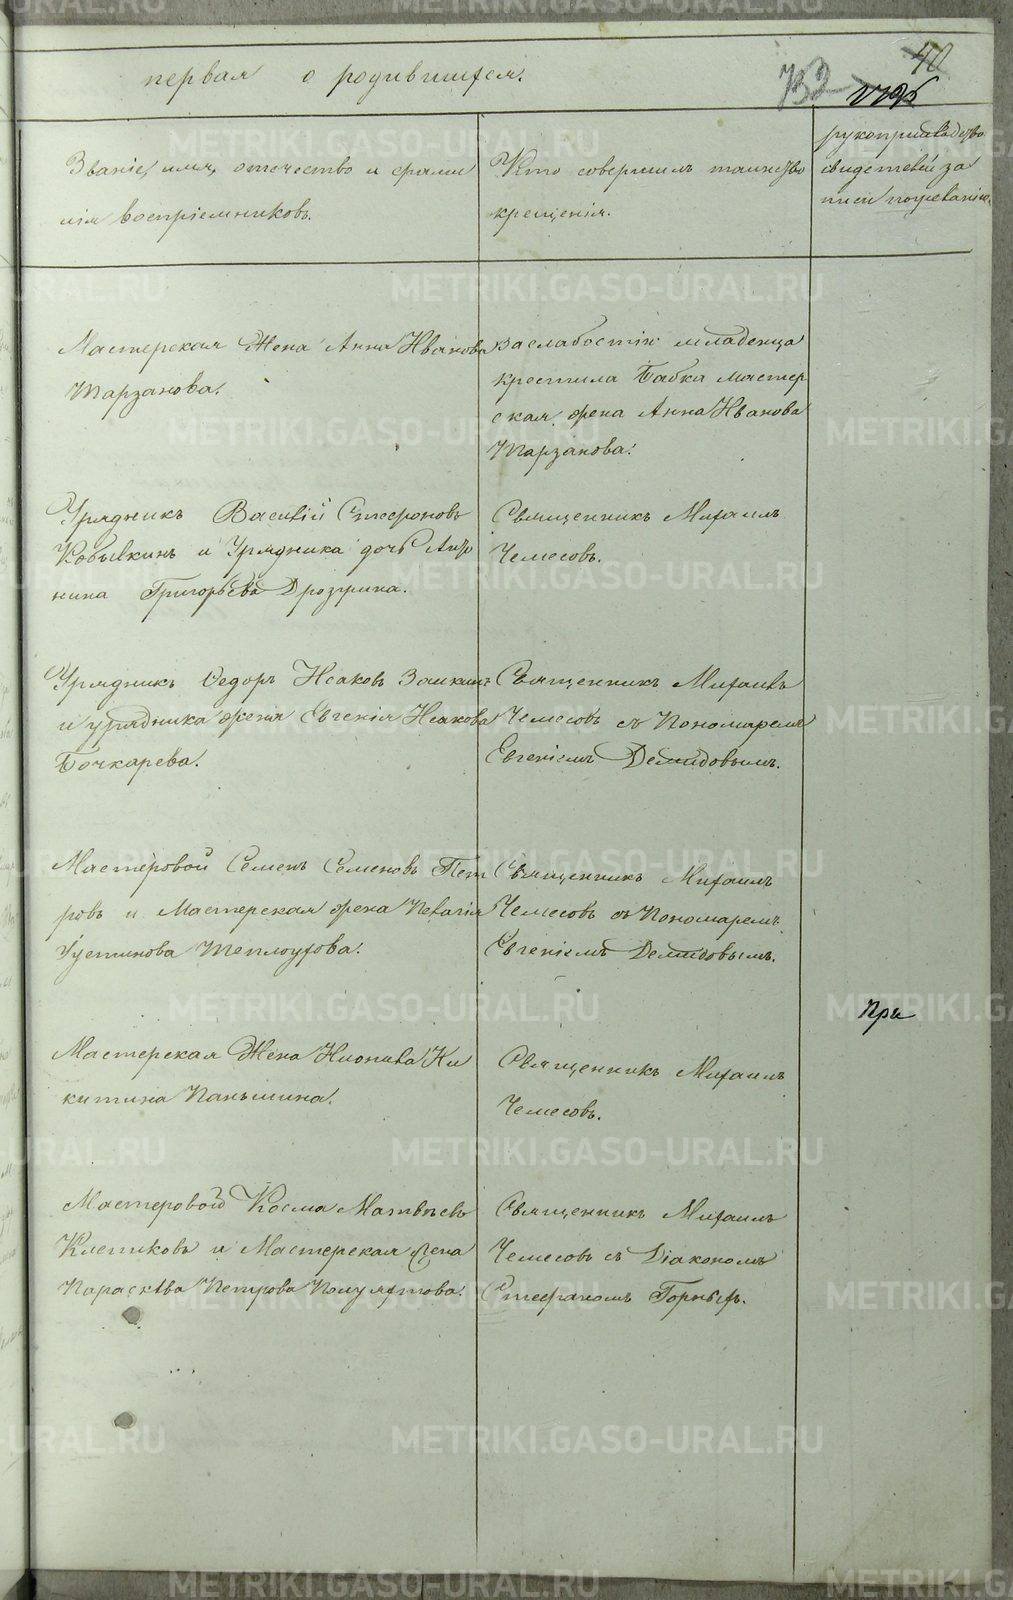 первая о родившихся.
40
732
Званіе, имя, отечество и фами
лія воспріемниковъ.
Кто совершилъ таинство
крещенія.
рукоприкладство
свидетелей за
писи по желанію.
Мастерская Жена Анна Иванова
Тарзанова.
за слабостію младенца
крестила Бабка мастер
ская жена Анна Иванова
Тарзанова.
Урядникъ Василій Стефановъ
Кобылкинъ и Урядника дочь Анто
нина Григорьева Дрозжина.
Священникъ Михаилъ
Чемесовъ.
Урядникъ Федоръ Исаковъ Заикинъ
и урядника жена Евгенія Исакова
Бочкарева.
Священникъ Михаилъ
Чемесовъ съ Пономаремъ
Евгеніемъ Демидовымъ.
Мастеровой Семенъ Семеновъ Пет
ровъ и Мастерская жена Пелагія
Іустинова Теплоухова.
Священникъ Михаилъ
Чемесовъ съ Пономаремъ
Евгеніемъ Демидовымъ.
При
Мастерская Жена Неонила Ни
китина Паньшина.
Священникъ Михаилъ
Чемесовъ.
Мастеровой Косма Матвѣевъ
Клепиковъ и Мастерская жена
Параскева Петрова Полуяхтова.
Священникъ Михаилъ
Чемесовъ съ Діакономъ
Стефаномъ Горныхъ.
METRIKI.GASO-URAL.RU